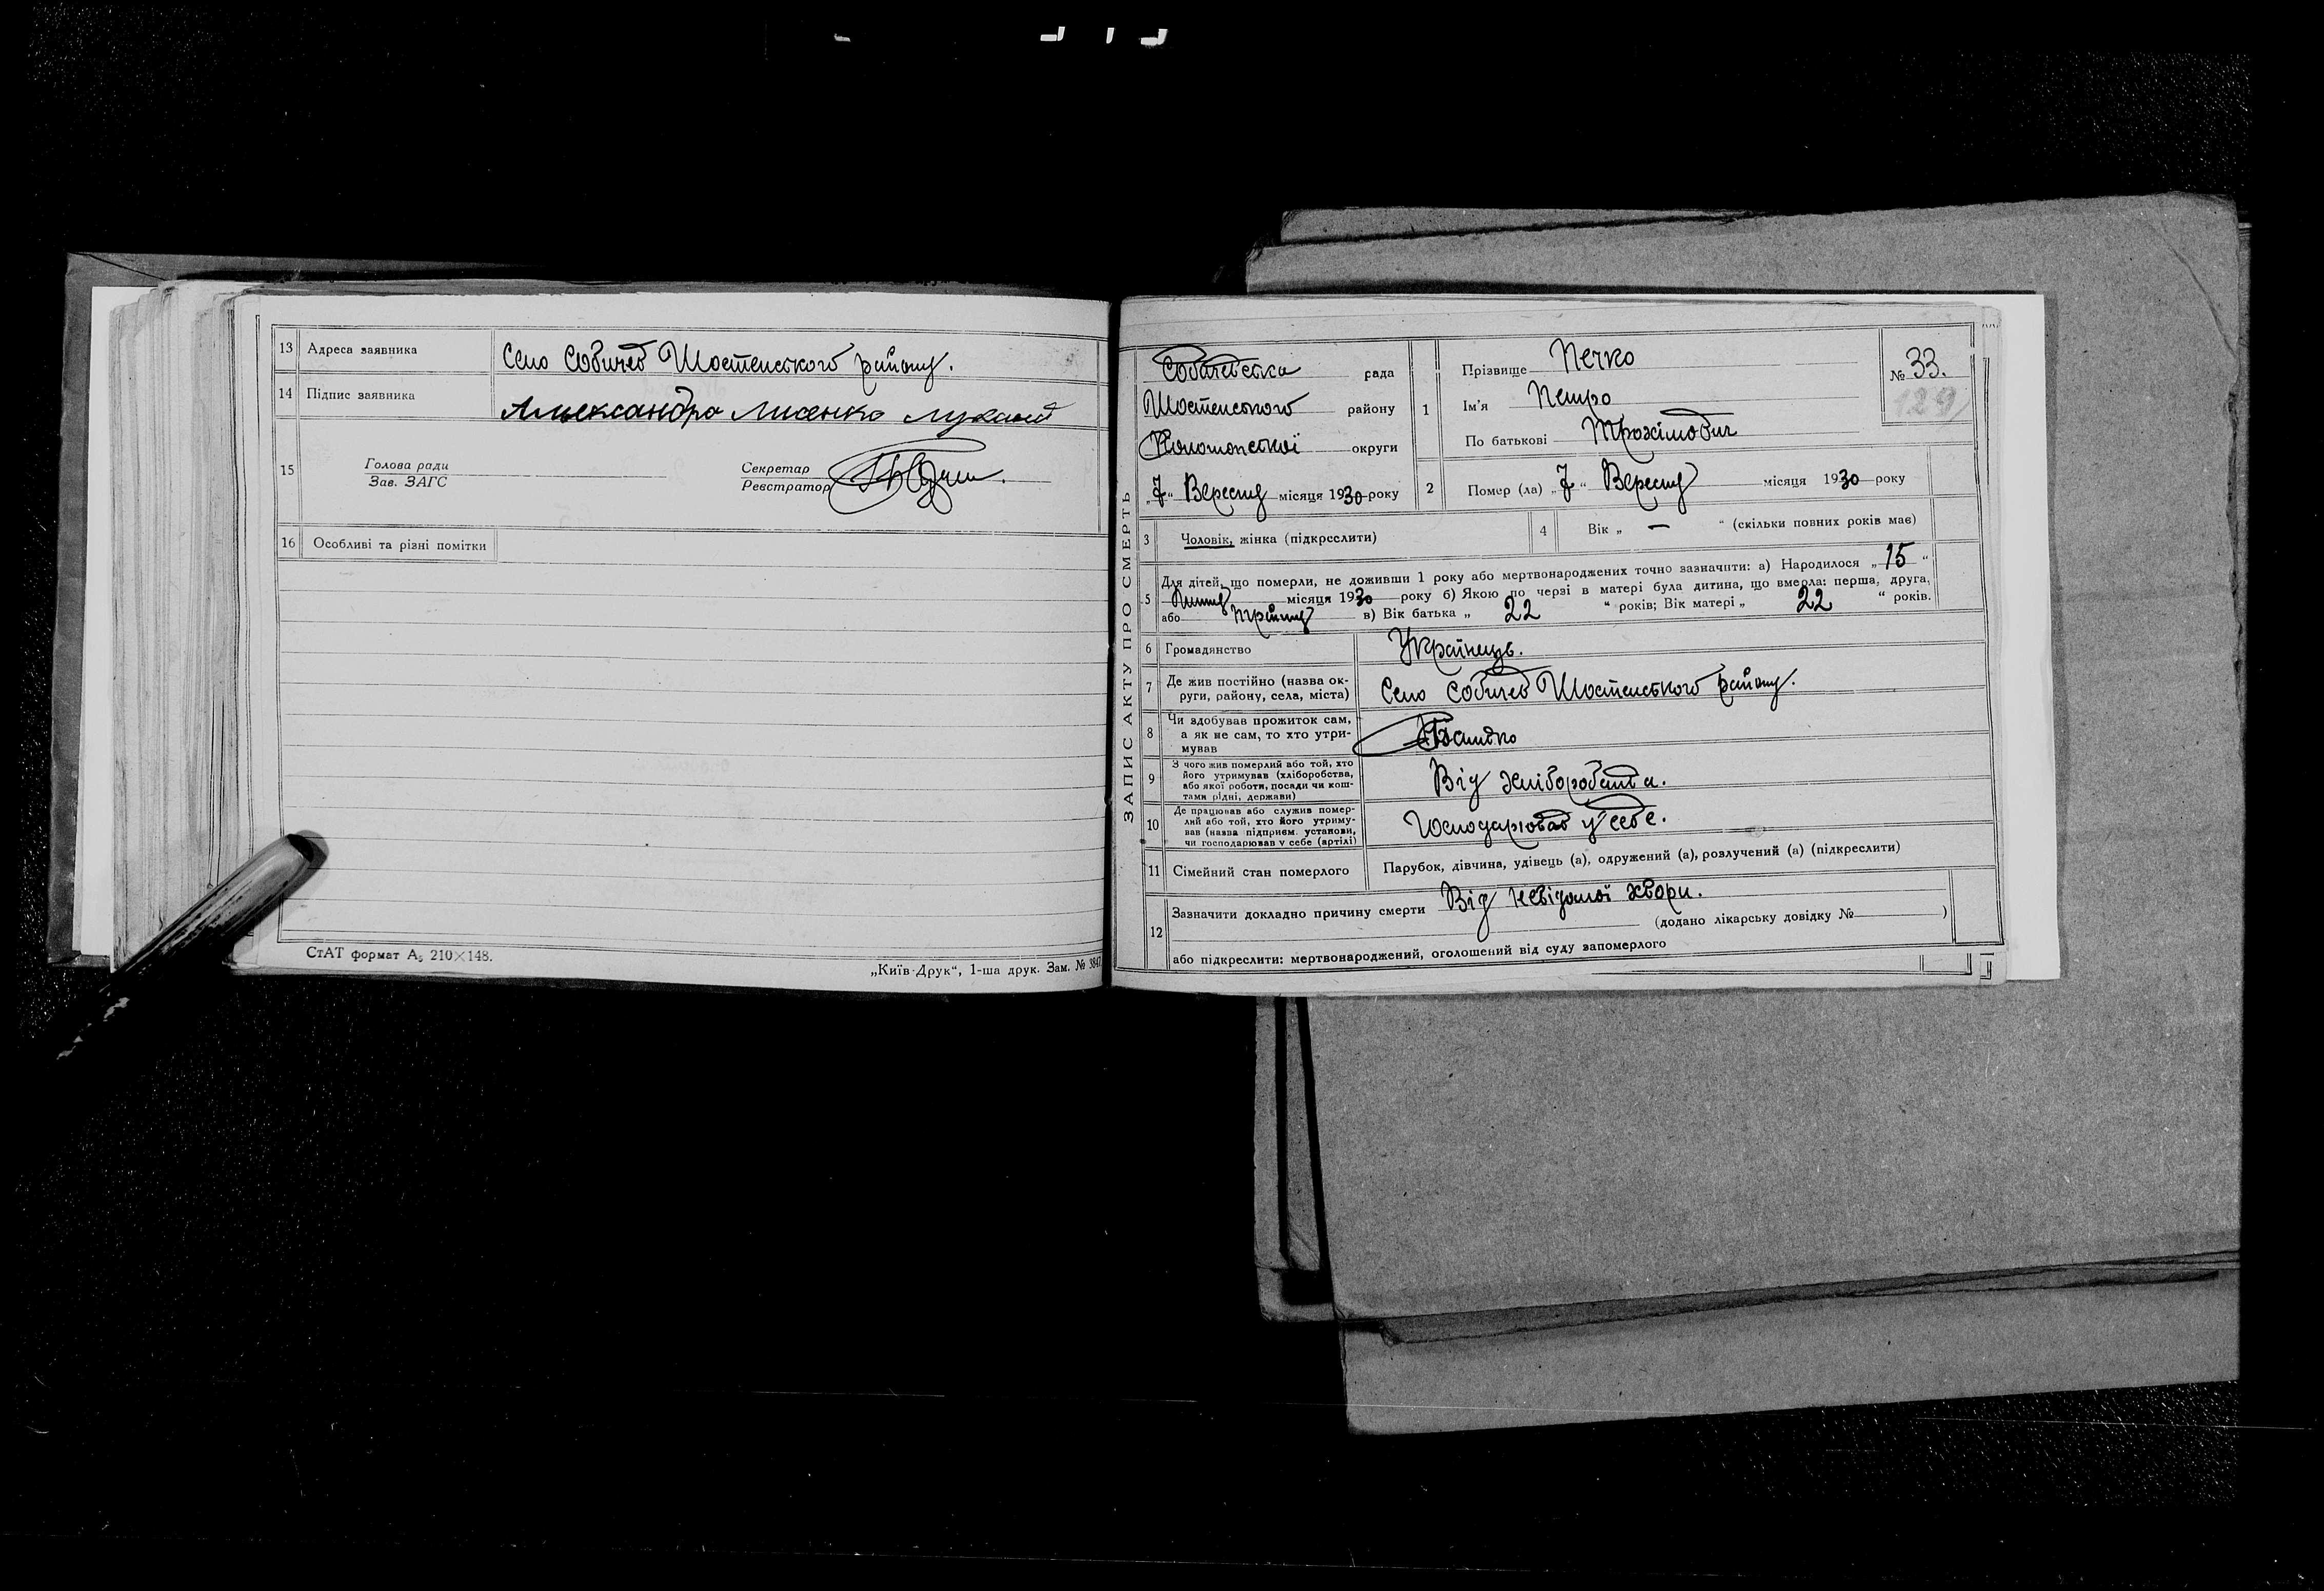 13 Адреса заявника Село Собичев Шостенського району.
14 Підпис заявника Александра Лисенко
15 Голова ради
Зав. ЗАГС
Секретар
Реєстратор
16 Особливі та різні помітки
СтАТ формат А5 210×148.
„Київ-Друк“, 1-ша друк. Зам. № 3847
ЗАПИС АКТУ ПРО СМЕРТЬ
Собичевська рада
Шостенського району
Конотопської округи
„7“ Вересня місяця 1930 року
1 Прізвище Печко
Ім'я Петро
По батькові Трохімович
№ 33.
129
2 Помер (ла) „7“ Вересня місяця 1930 року
3 Чоловік, жінка (підкреслити)
4 Вік „ — “ (скільки повних років має)
5 Для дітей, що померли, не доживши 1 року або мертвонароджених точно зазначити: а) Народилося „15“
Липня місяця 1930 року б) Якою по черзі в матері була дитина, що вмерла: перша, друга,
або третя в) Вік батька „ 22 “ років; Вік матері „ 22 “ років.
6 Громадянство Українець.
7 Де жив постійно (назва ок-
руги, району, села, міста) Село Собичев Шостенського району.
8 Чи здобував прожиток сам,
а як не сам, то хто утри-
мував Батько
9 З чого жив померлий або той, хто
його утримував (хліборобства,
або якої роботи, посади чи кош-
тами рідні, держави) Від хліборобства.
10 Де працював або служив помер-
лий або той, хто його утриму-
вав (назва підприєм. установи,
чи господарював у себе (артілі) Господарював у себе.
11 Сімейний стан померлого Парубок, дівчина, удівець (а), одружений (а), розлучений (а) (підкреслити)
12 Зазначити докладно причину смерти Від невідомої хвори.
(додано лікарську довідку № )
або підкреслити: мертвонароджений, оголошений від суду запомерлого